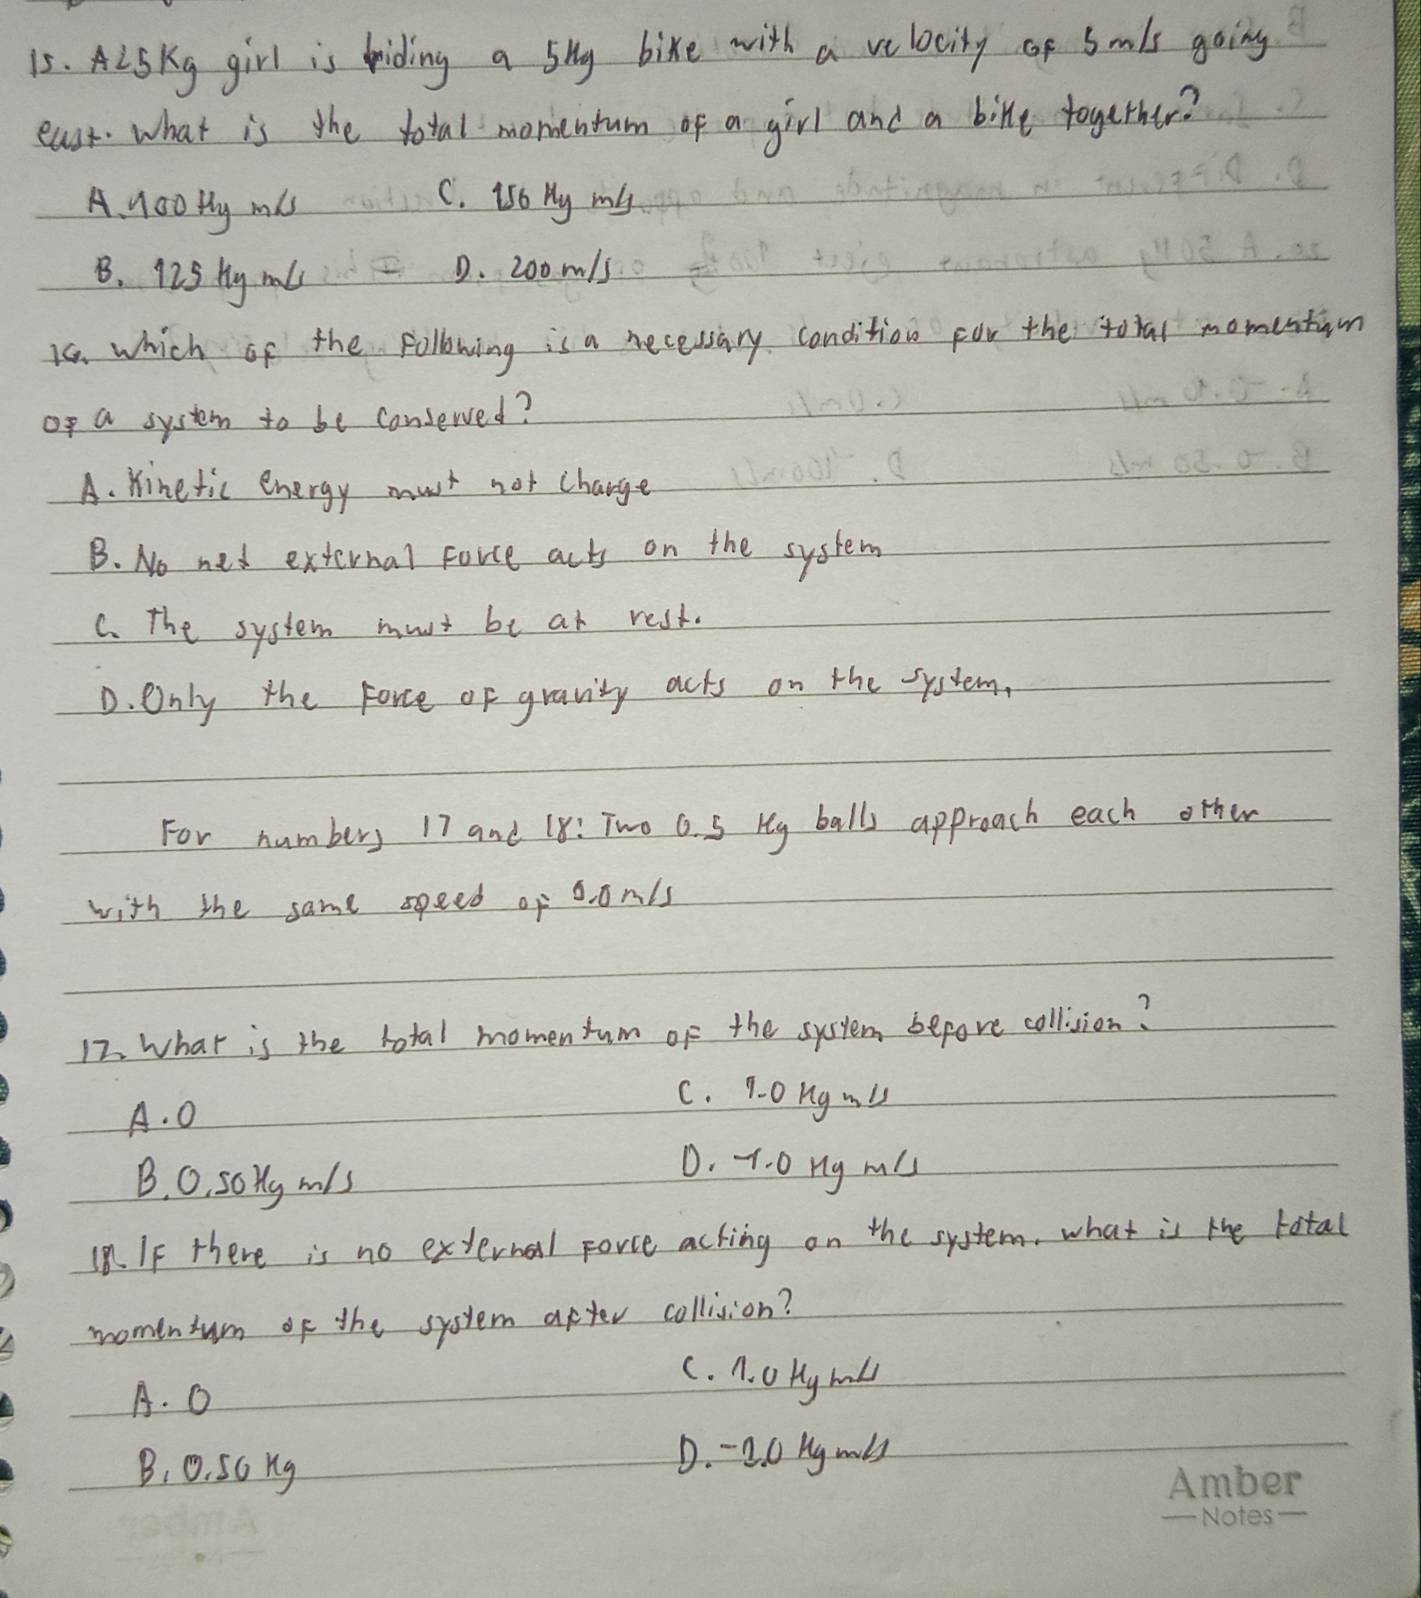 15. A 25 Kg girl is riding a 5 Kg bike with a velocity of 5 m/s going
east. What is the total momentum of a girl and a bike together?
A. 100 Kg m/s C. 150 Kg m/s
B. 125 Kg m/s D. 200 m/s
16. Which of the Following is a necessary condition for the total momentum
of a system to be conserved?
A. Kinetic Energy must not change
B. No net external Force acts on the system
C. The system must be at rest.
D. Only the Force of gravity acts on the system.
For numbers 17 and 18: Two 0.5 Kg balls approach each other
with the same speed of m/s
17. What is the total momentum of the system before collision?
A. 0 C. 1.0 Kg m/s
B. 0.50 Kg m/s D. -1.0 Kg m/s
18. IF there is no external Force acting on the system. what is the total
momentum of the system after collision?
A. 0 C. 1.0 Kg m/s
B. 0.50 Kg D. Kg m/s
Amber
Notes